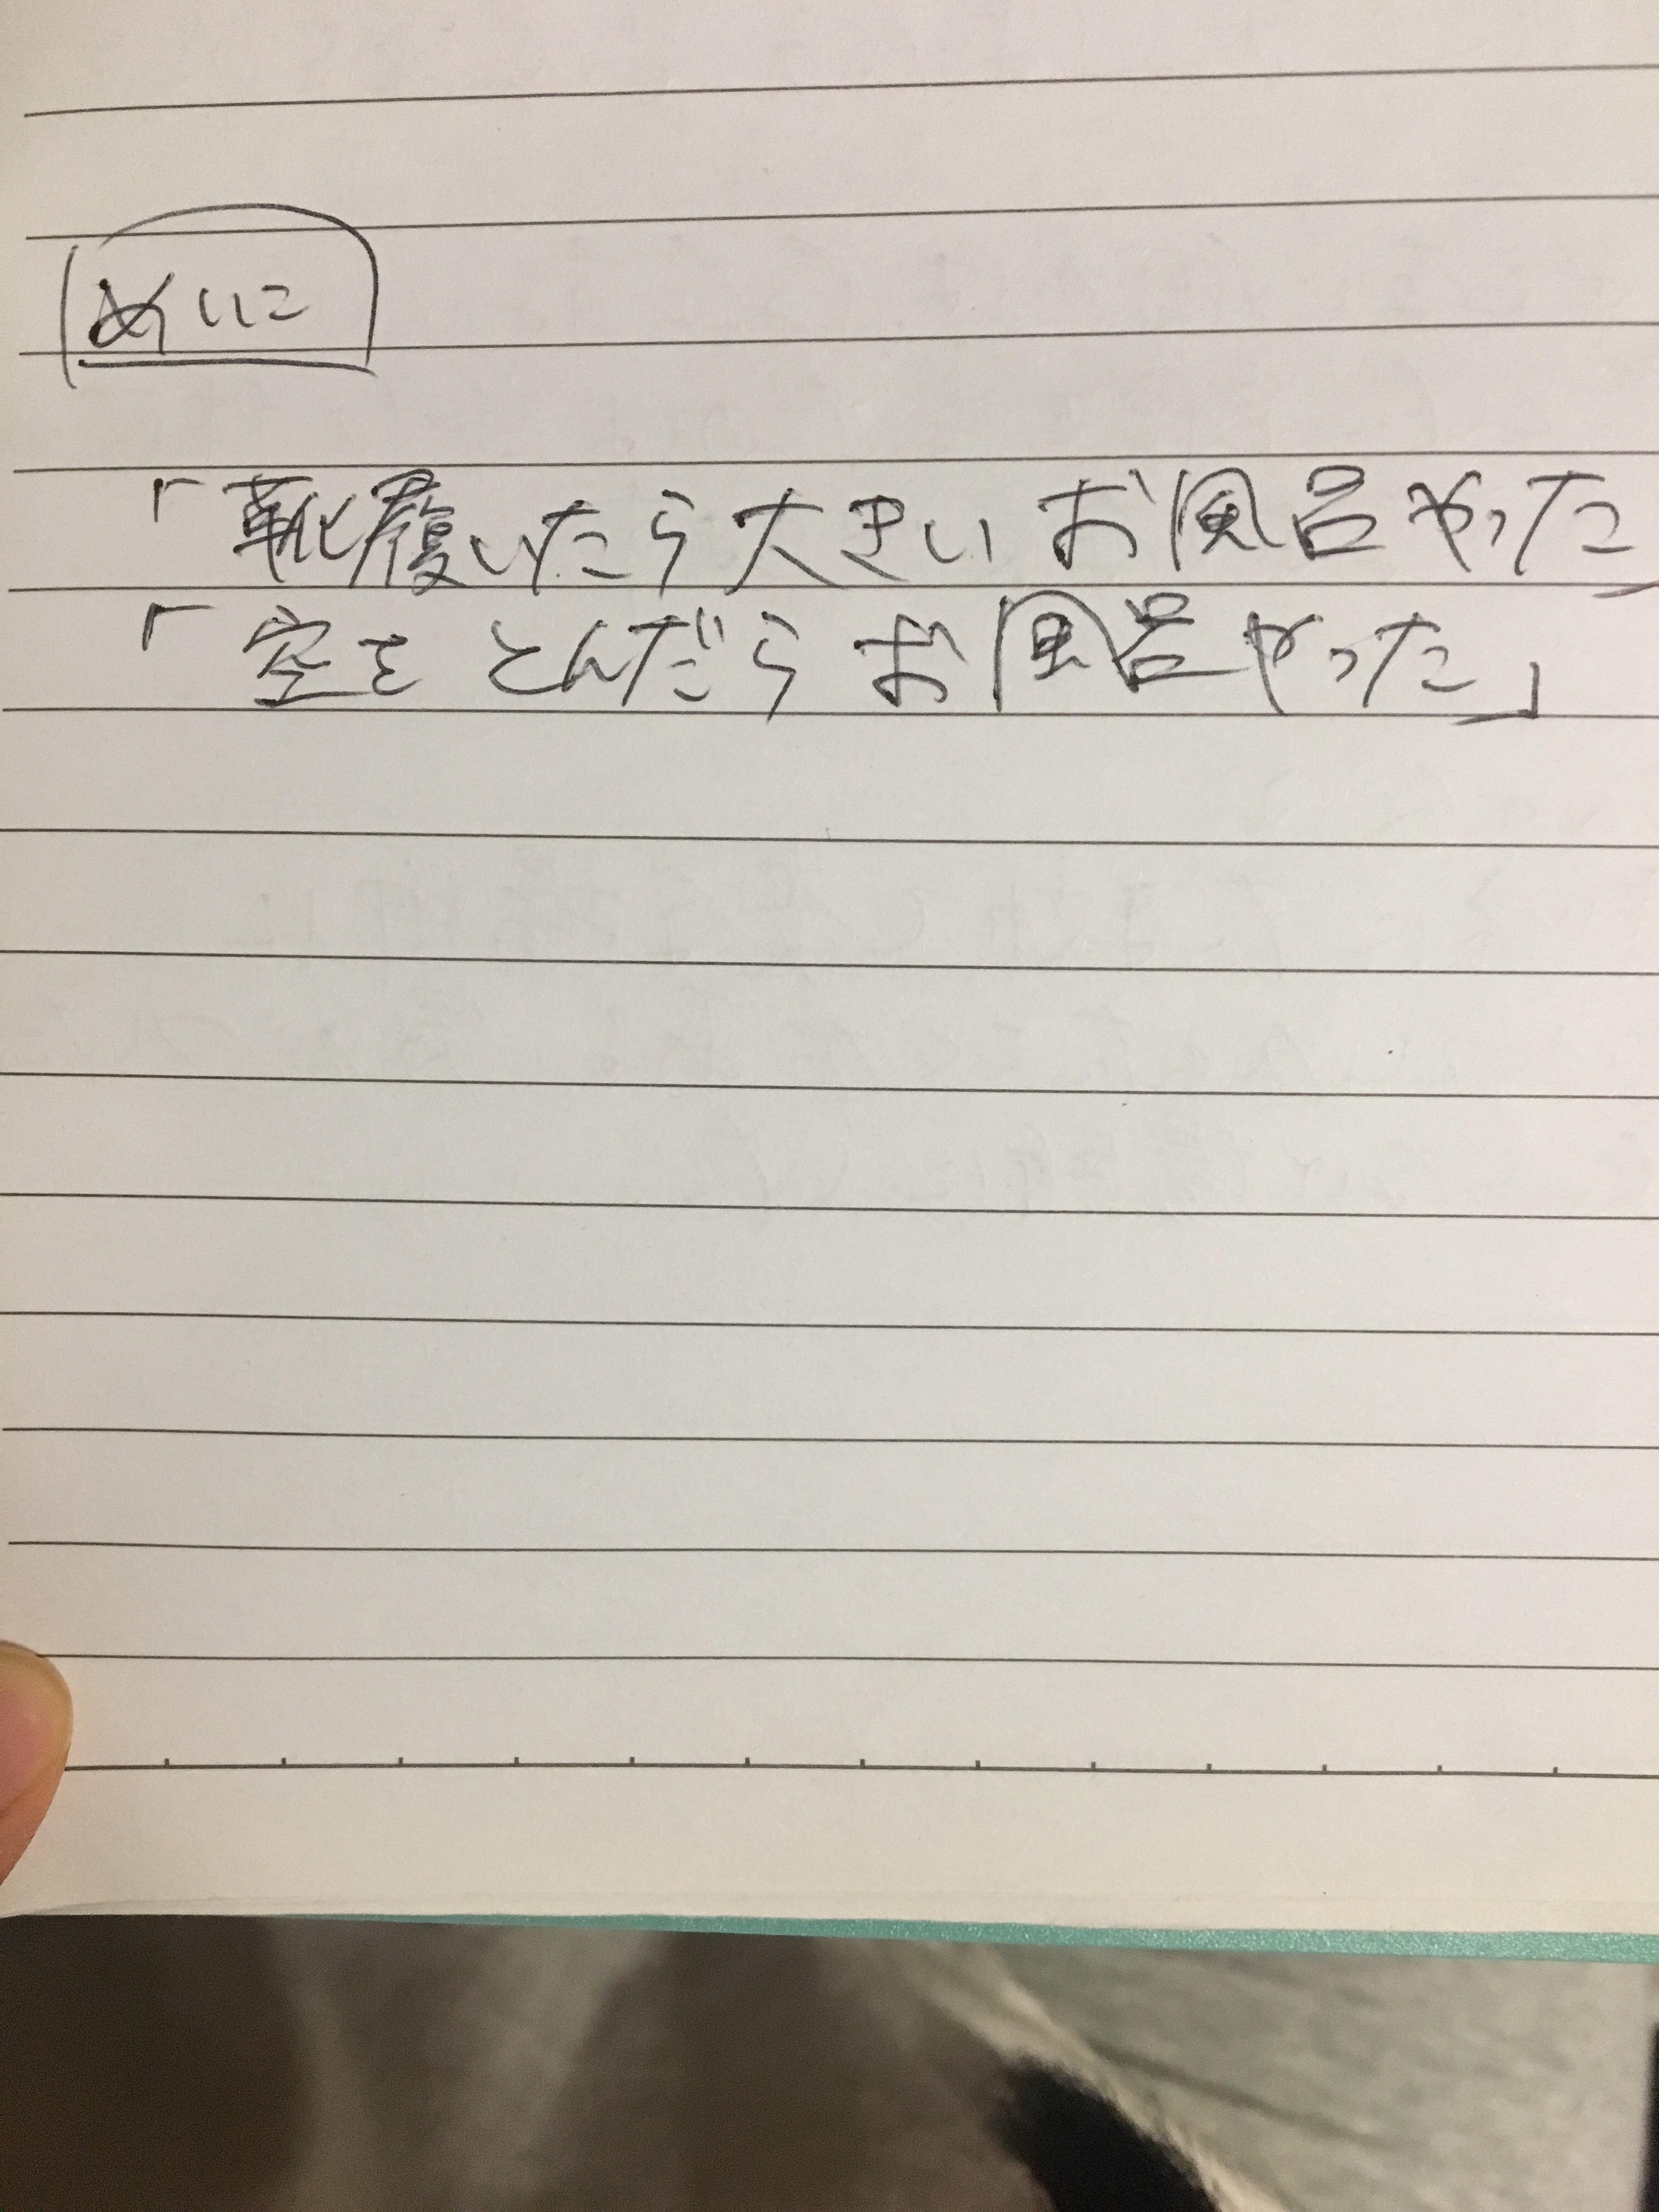 めいに
「靴履いたら大きいお風呂やった」
「空をとんだらお風呂やった」